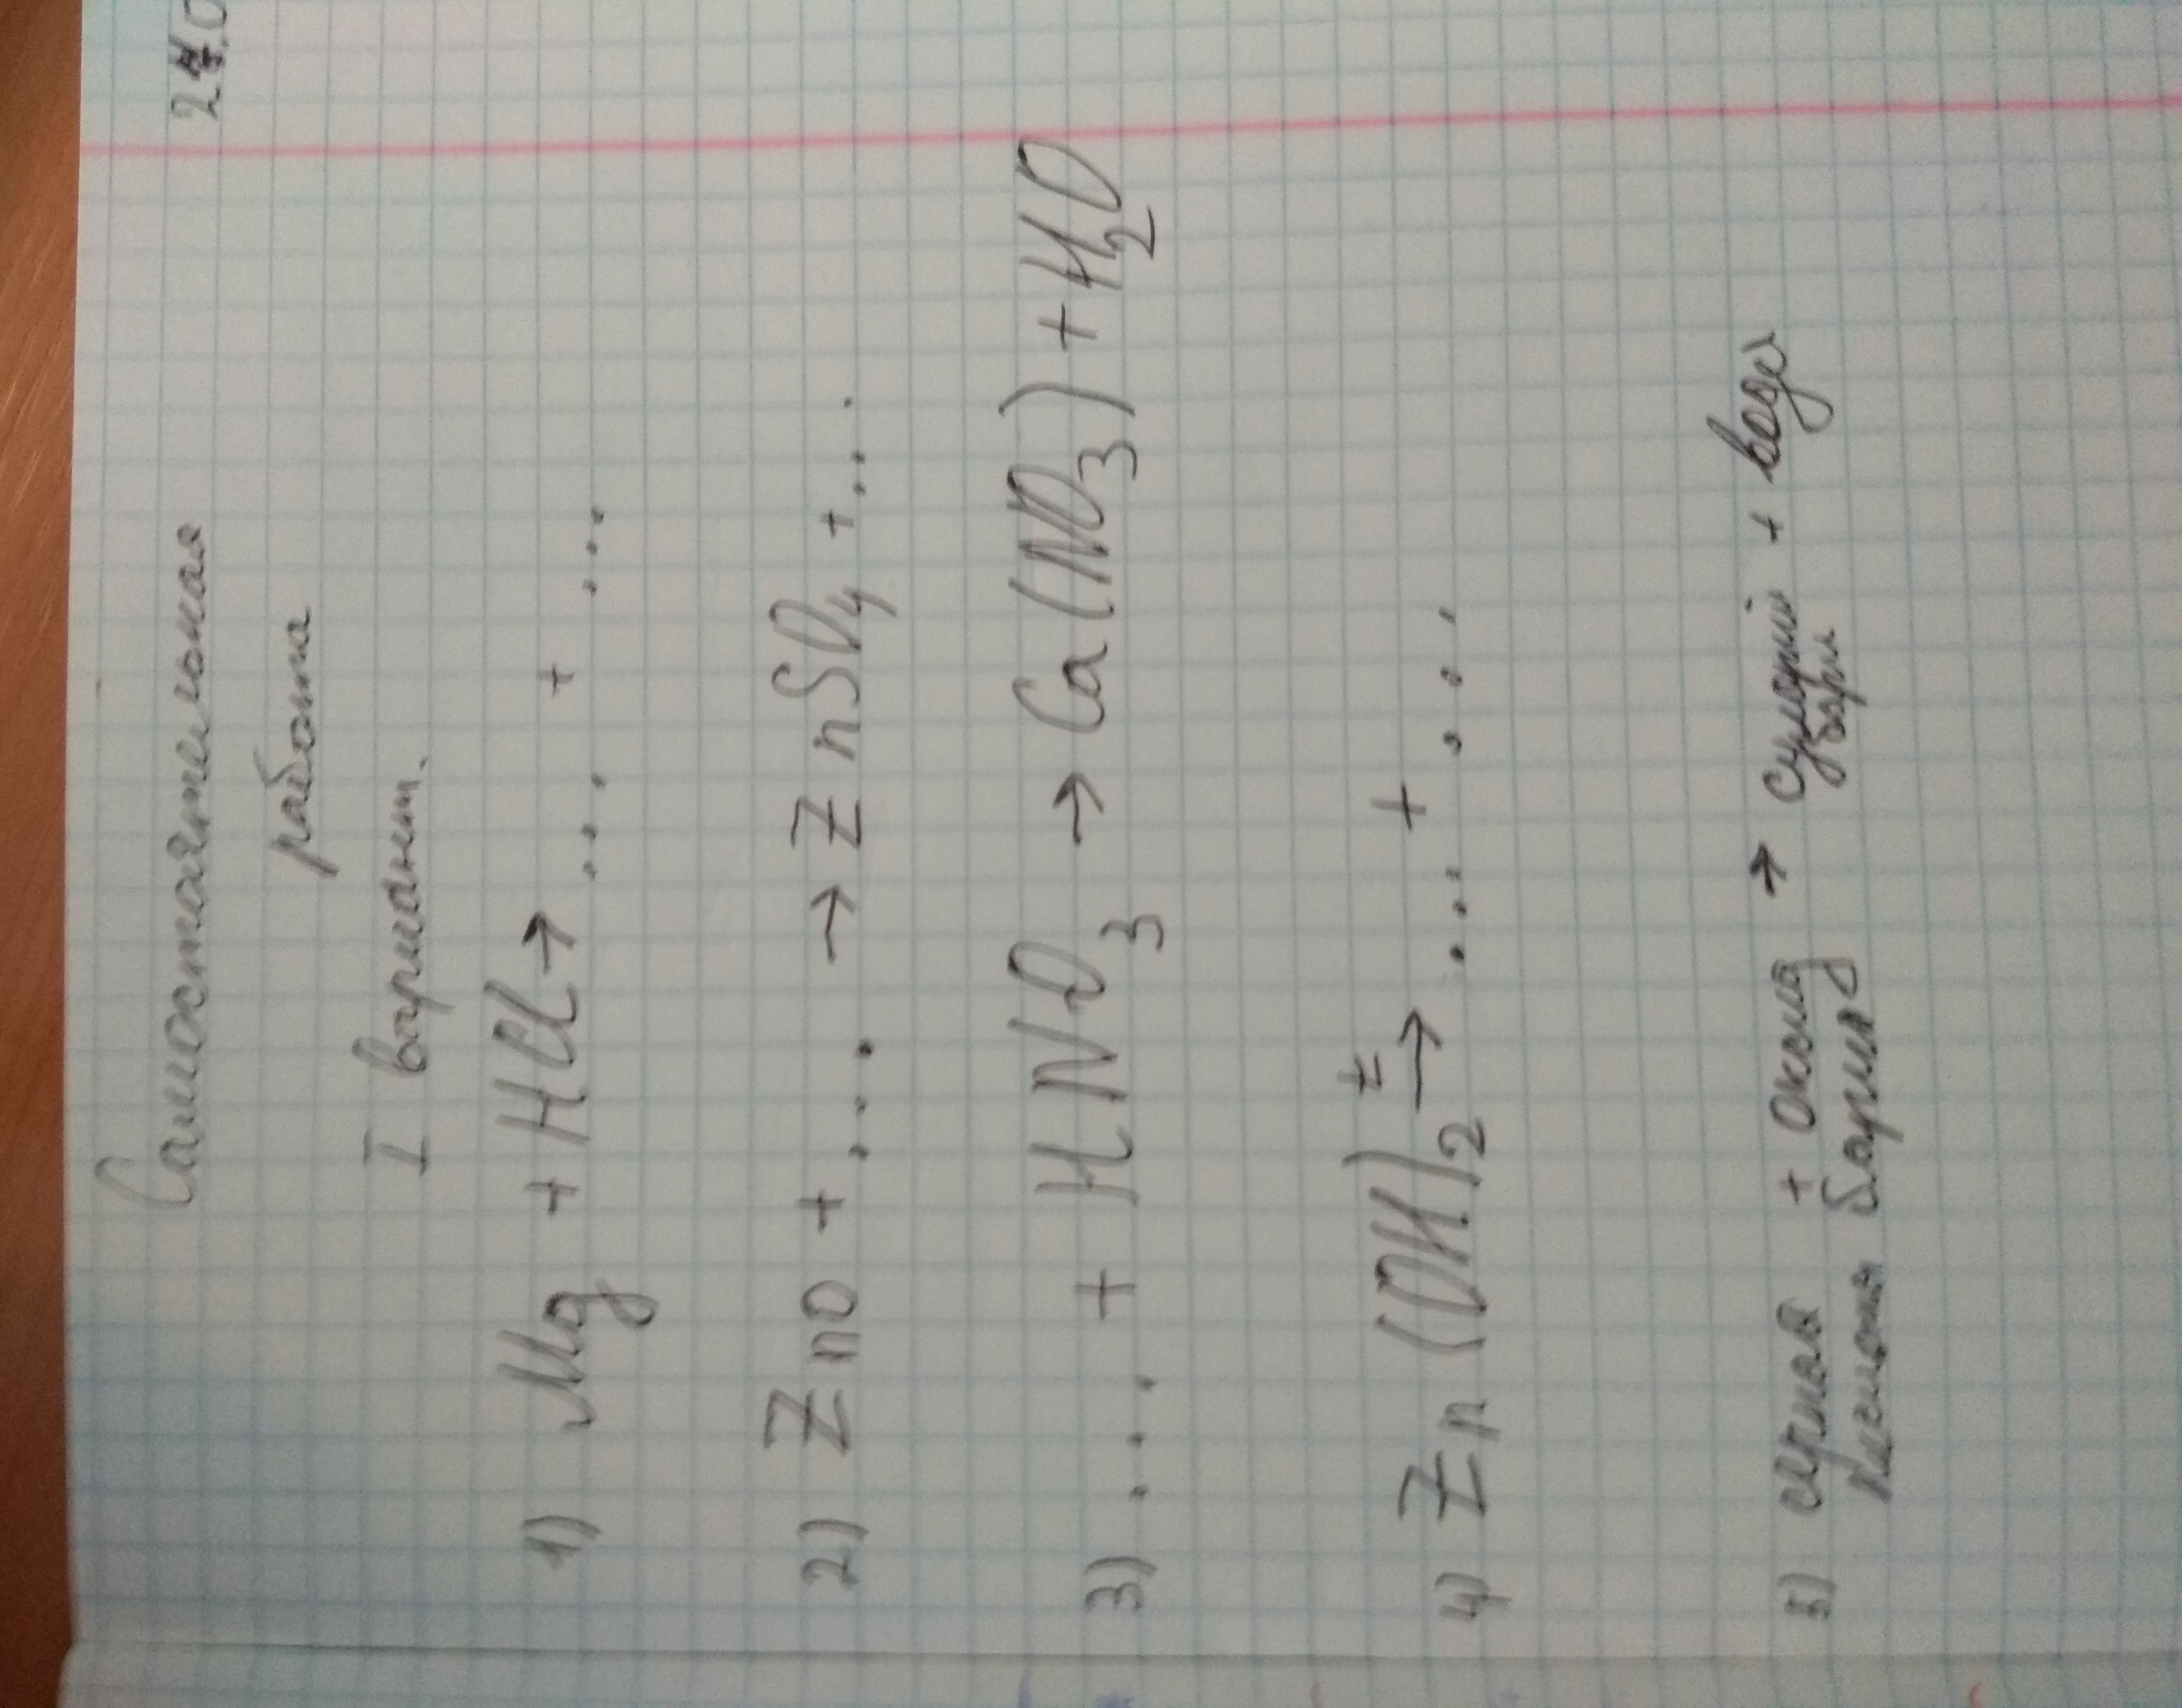 24.0
Самостоятельная
работа
I вариант.
1) Mg + HCl → ... + ...
2) ZnO + ... → ZnSO₄ + ...
3) ... + HNO₃ → Ca(NO₃) + H₂O
4) Zn(OH)₂ t→ ... + ...
5) серная + оксид → сульфат + вода
кислота бария бари